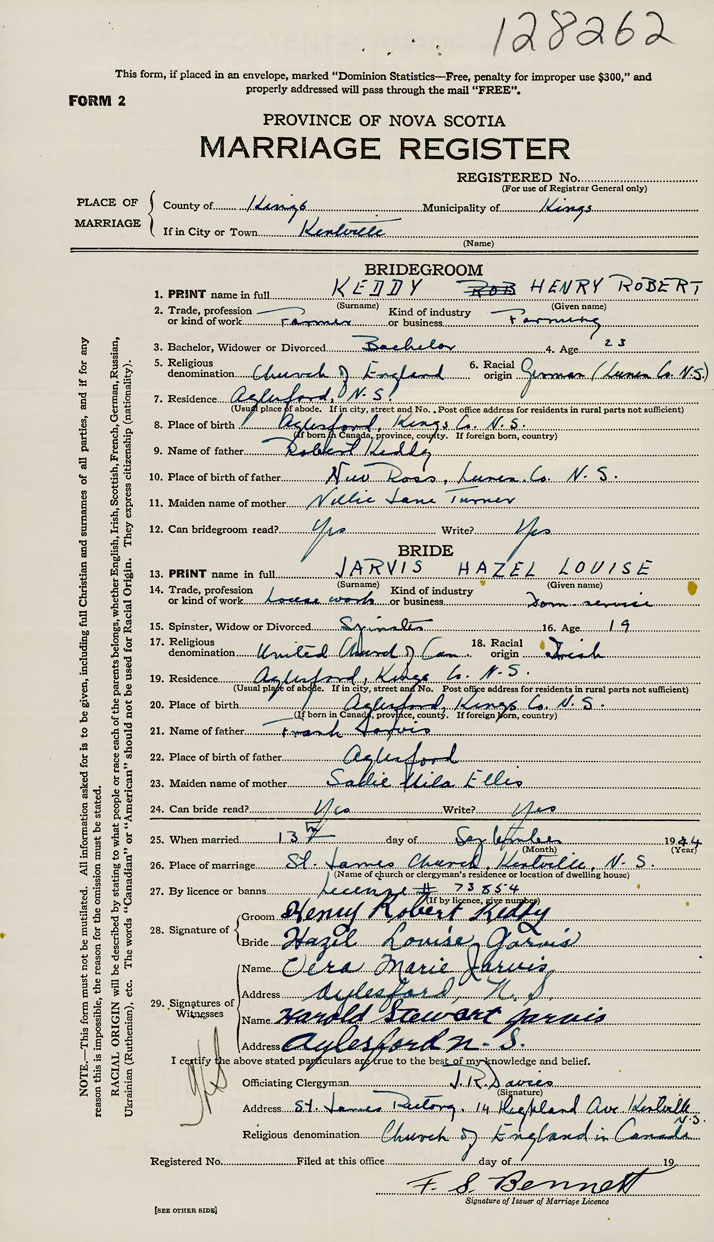 128262
This form, if placed in an envelope, marked "Dominion Statistics—Free, penalty for improper use $300," and
properly addressed will pass through the mail "FREE".
FORM 2
PROVINCE OF NOVA SCOTIA
MARRIAGE REGISTER
REGISTERED No.
(For use of Registrar General only)
PLACE OF MARRIAGE
County of Kings Municipality of Kings
If in City or Town Kentville
(Name)
BRIDEGROOM
1. PRINT name in full KEDDY ROB HENRY ROBERT
(Surname) (Given name)
2. Trade, profession or kind of work Farmer Kind of industry or business Farming
3. Bachelor, Widower or Divorced Bachelor 4. Age 23
5. Religious denomination Church of England 6. Racial origin German (Lunen Co. N.S.)
7. Residence Aylesford, N.S.
(Usual place of abode. If in city, street and No. Post office address for residents in rural parts not sufficient)
8. Place of birth Aylesford, Kings Co. N.S.
(If born in Canada, province, county. If foreign born, country)
9. Name of father Robert Keddy
10. Place of birth of father New Ross, Lunen. Co. N.S.
11. Maiden name of mother Nellie Jane Turner
12. Can bridegroom read? Yes Write? Yes
BRIDE
13. PRINT name in full JARVIS HAZEL LOUISE
(Surname) (Given name)
14. Trade, profession or kind of work House work Kind of industry or business Dom. service
15. Spinster, Widow or Divorced Spinster 16. Age 19
17. Religious denomination United Church of Can. 18. Racial origin Irish
19. Residence Aylesford, Kings Co. N.S.
(Usual place of abode. If in city, street and No. Post office address for residents in rural parts not sufficient)
20. Place of birth Aylesford, Kings Co. N.S.
(If born in Canada, province, county. If foreign born, country)
21. Name of father Frank Jarvis
22. Place of birth of father Aylesford
23. Maiden name of mother Sadie Ellis
24. Can bride read? Yes Write? Yes
25. When married 13th day of September 1944
(Month) (Year)
26. Place of marriage St. James Church, Kentville, N.S.
(Name of church or clergyman's residence or location of dwelling house)
27. By licence or banns License # 73854
(If by licence, give number)
28. Signature of
Groom Henry Robert Keddy
Bride Hazel Louise Jarvis
29. Signatures of Witnesses
Name Vera Marie Jarvis
Address Aylesford, N.S.
Name Harold Stewart Jarvis
Address Aylesford N.S.
I certify the above stated particulars are true to the best of my knowledge and belief.
Officiating Clergyman J.R. Davies
(Signature)
Address St. James Rectory, 14 Highland Ave Kentville N.S.
Religious denomination Church of England in Canada
Registered No. Filed at this office day of 19
F. S. Bennett
Signature of Issuer of Marriage Licence
[SEE OTHER SIDE]
NOTE.—This form must not be mutilated. All information asked for is to be given, including full Christian and surnames of all parties, and if for any
reason this is impossible, the reason for the omission must be stated.
RACIAL ORIGIN will be described by stating to what people or race each of the parents belongs, whether English, Irish, Scottish, French, German, Russian,
Ukrainian (Ruthenian), etc. The words "Canadian" or "American" should not be used for Racial Origin. They express citizenship (nationality).